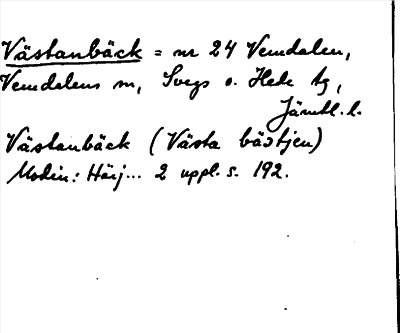 Västanbäck = nr 24 Vemdalen,
Vemdalens sn, Svegs o. Hede tg,
Jämtl. l.
Västanbäck (Västa bästjen)
Modin: Härj... 2 uppl. s. 192.